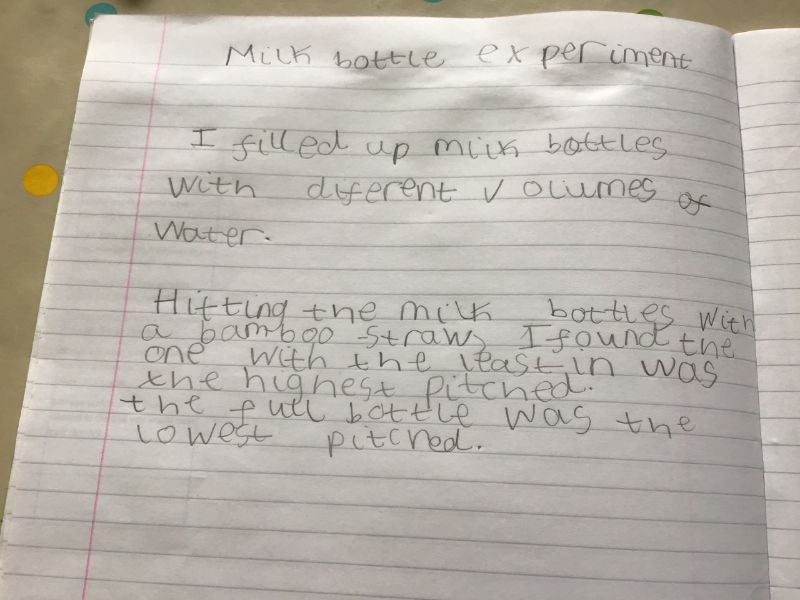 Milk bottle experiment
I filled up milk bottles
with diferent volumes of
water.
Hitting the milk bottles with
a bamboo straw, I found the
one with the least in was
the highest pitched.
the full bottle was the
lowest pitched.